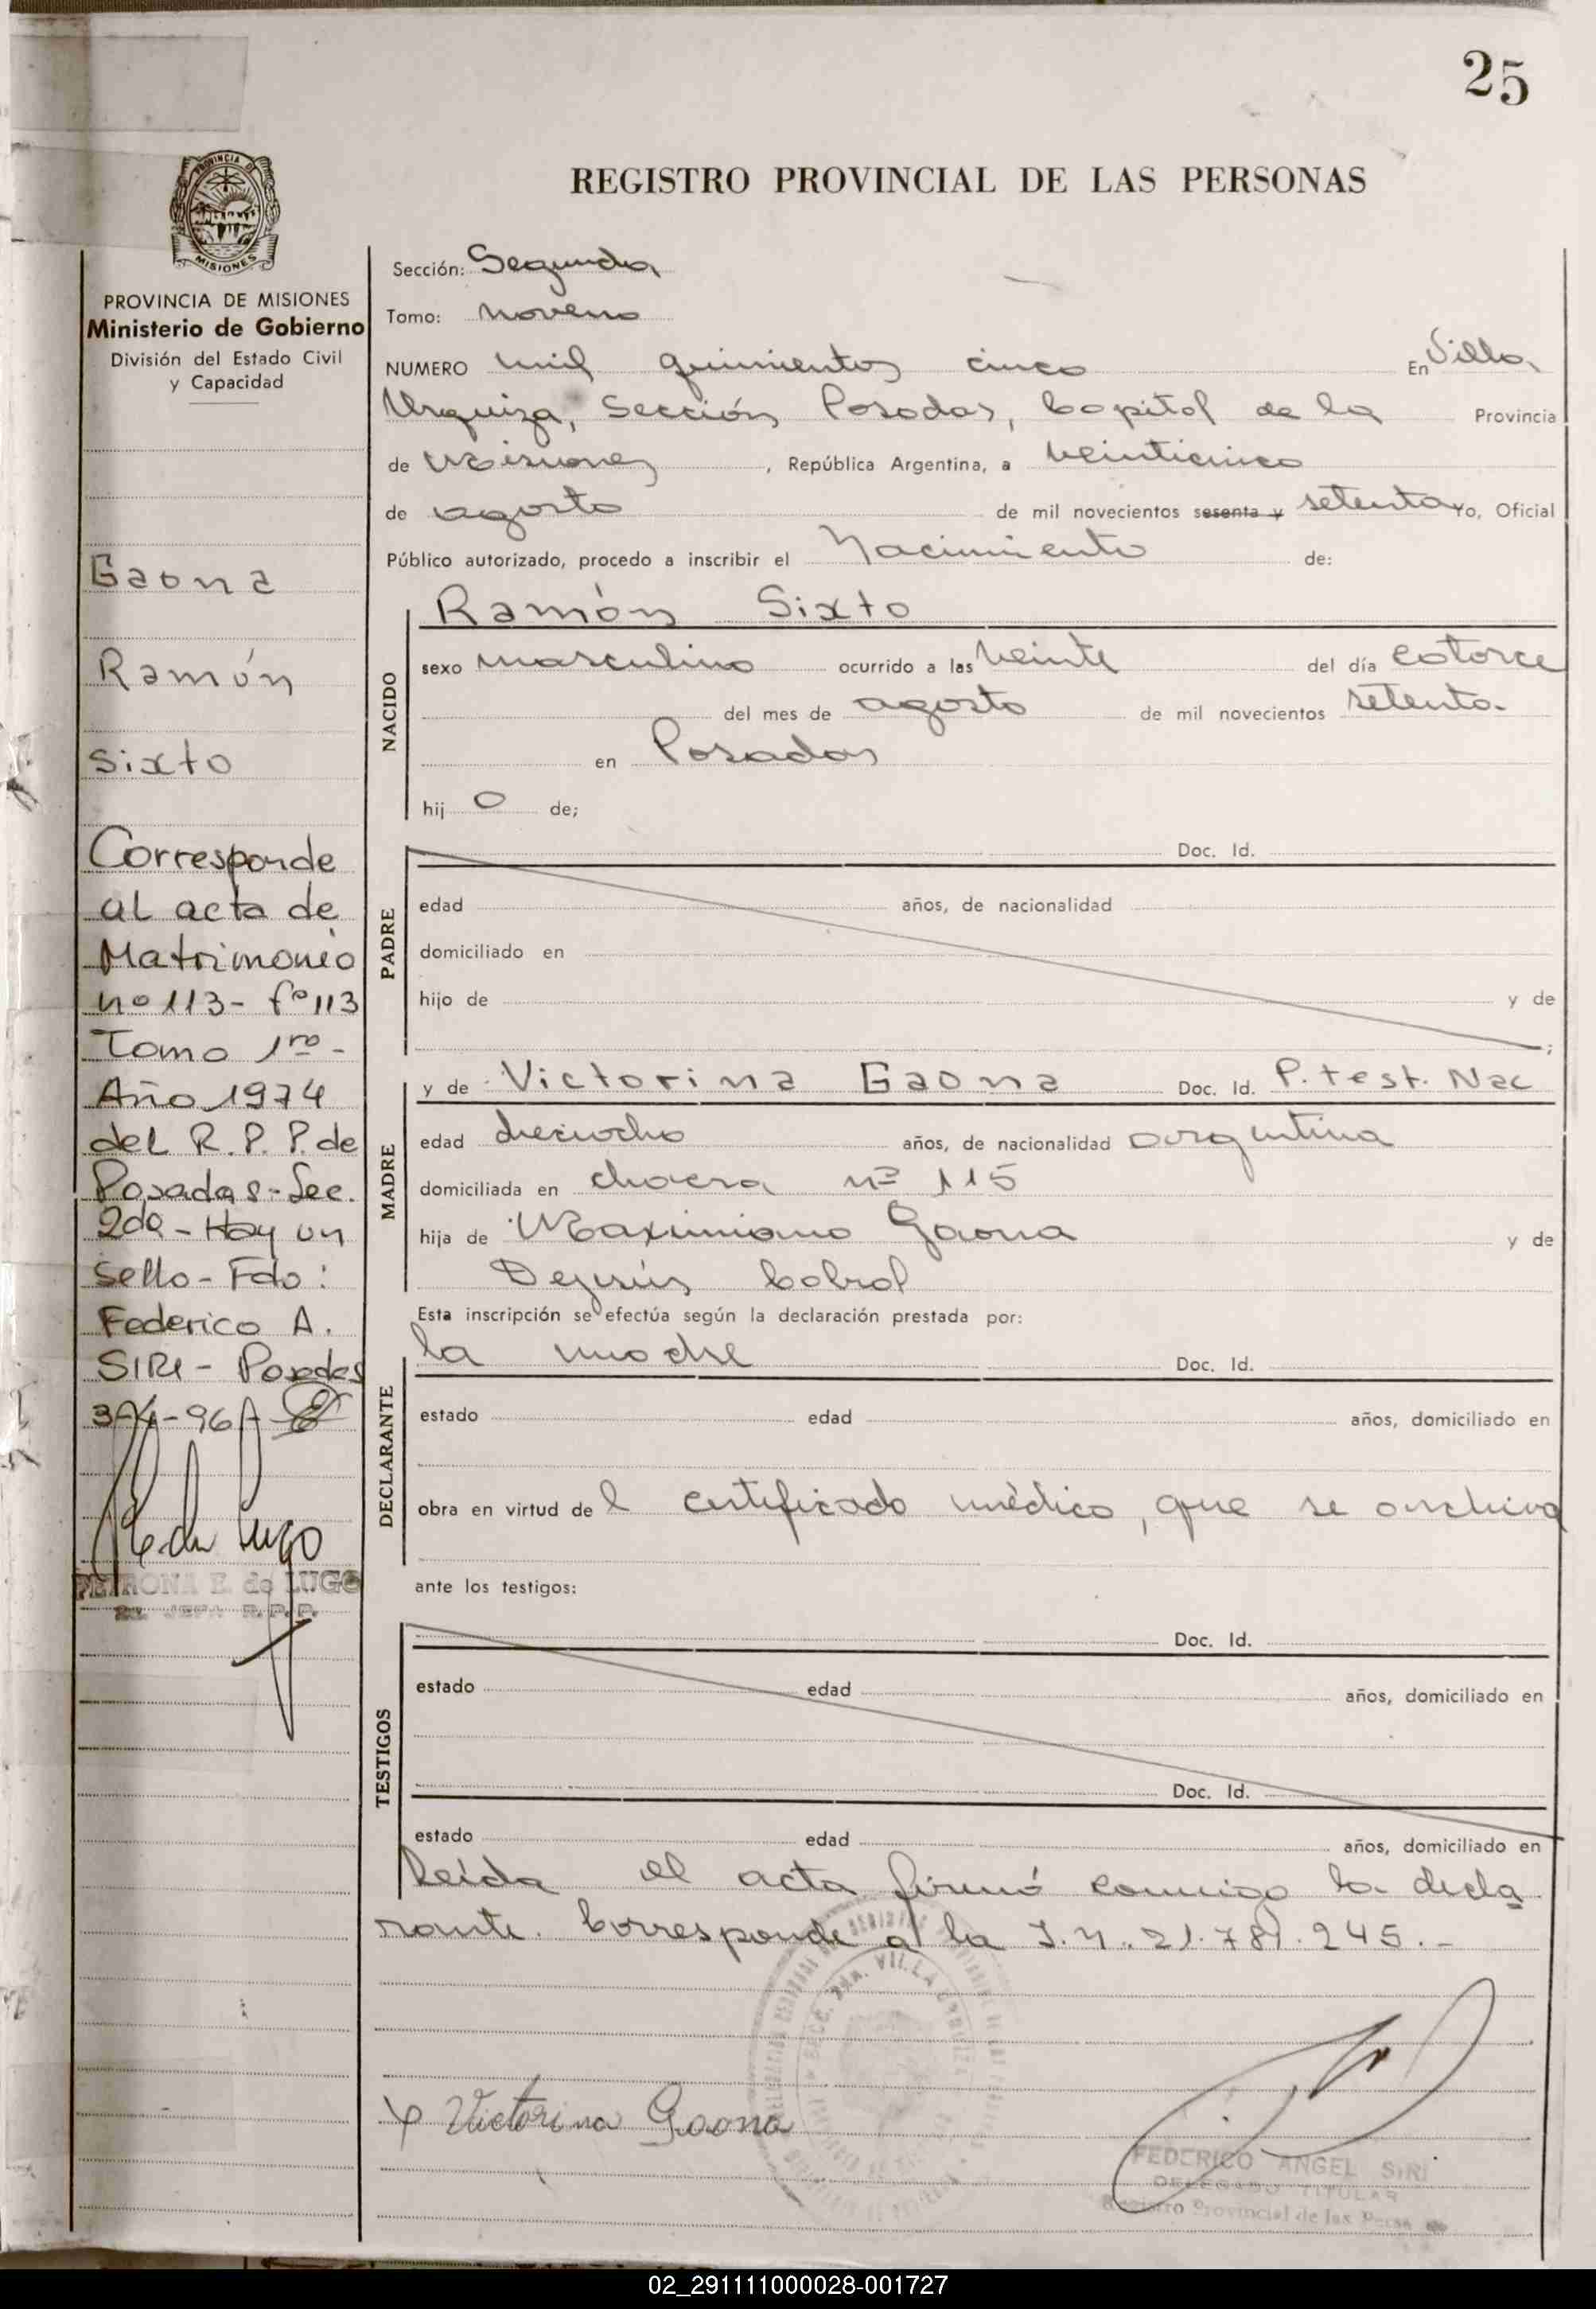 25
REGISTRO PROVINCIAL DE LAS PERSONAS
PROVINCIA DE MISIONES
PROVINCIA DE MISIONES
Ministerio de Gobierno
División del Estado Civil
y Capacidad
Gaona
Ramón
Sixto
Corresponde
al acta de
Matrimonio
nº 113 - fº 113
Tomo 1ro -
Año 1974
del R. P. P. de
Posadas - Sec.
2da - Hay un
sello - Fdo:
Federico A.
SIRI - Posadas
96
PETRONA E. de LUGO
JEFA R.P.P.
Sección: Segunda
Tomo: noveno
NUMERO mil quinientos cinco En Villa
Urquiza, Sección Posadas, Capital de la Provincia
de Misiones, República Argentina, a veinticinco
de agosto de mil novecientos sesenta y setenta Yo, Oficial
Público autorizado, procedo a inscribir el Nacimiento de:
Ramón Sixto
NACIDO
sexo masculino ocurrido a las veinte del día catorce
del mes de agosto de mil novecientos setenta.
en Posadas
hij o de;
PADRE
Doc. Id.
edad años, de nacionalidad
domiciliado en
hijo de y de
;
MADRE
y de Victorina Gaona Doc. Id. P. test. Nac
edad dieciocho años, de nacionalidad argentina
domiciliada en chacra nº 115
hija de Maximiano Gaona y de
Dejesús Cabral
Esta inscripción se efectúa según la declaración prestada por:
DECLARANTE
la madre Doc. Id.
estado edad años, domiciliado en
obra en virtud de l certificado médico, que se archiva
ante los testigos:
TESTIGOS
Doc. Id.
estado edad años, domiciliado en
Doc. Id.
estado edad años, domiciliado en
Leída el acta firmó conmigo la decla
rante. Corresponde a la I.N. 21.781.245.-
Victorina Gaona
FEDERICO ANGEL SIRI
DELEGADO TITULAR
Registro Provincial de las Personas
02_291111000028-001727